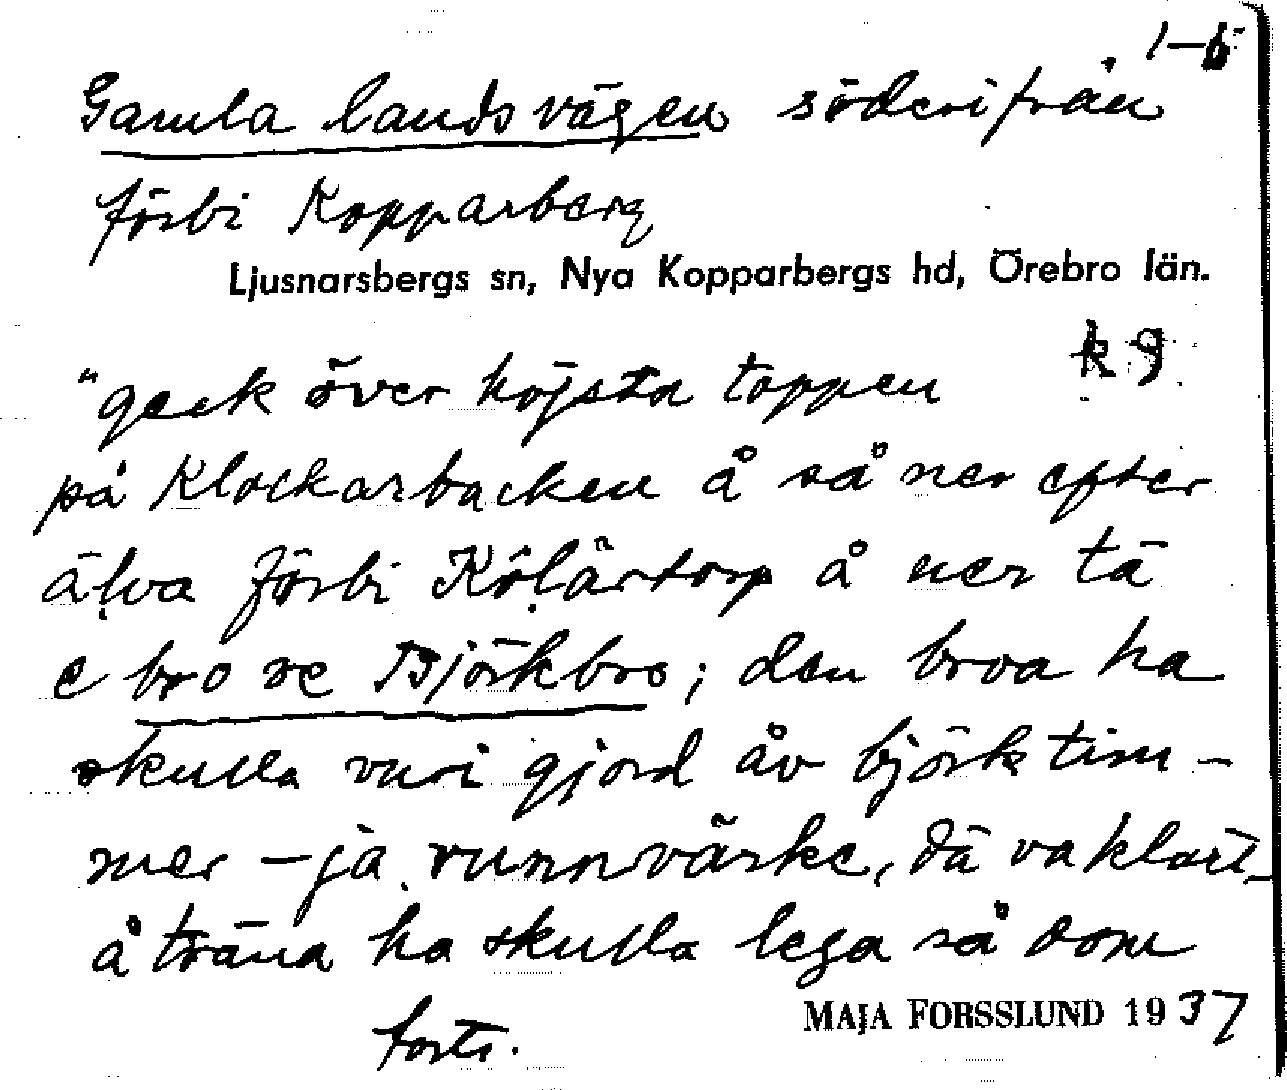 1-6
Gamla landsvägen söderifrån
förbi Kopparberg
Ljusnarsbergs sn, Nya Kopparbergs hd, Örebro län.
k 9
"geck över höjsta toppen
på Klockarbacken å så ner efter
älva förbi Kölärtorp å ner tä
e bro ve Björkbro; den broa ha
skulla vuri gjord åv björktim-
mer – ja runnvärke, dä va klart
å träna ha skulla lega så dom
forts.
MAJA FORSSLUND 1937